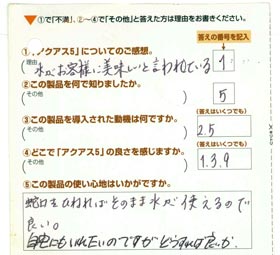 ▼①で「不満」、②〜④で「その他」と答えた方は理由をお書きください。
答えの番号を記入
①「アクアス5」についてのご感想。
(理由 水がお客様に美味しいと言われている) 1
②この製品を何で知りましたか。
(その他 ) 5
③この製品を導入された動機は何ですか。(答えはいくつでも)
(その他 ) 2.5
④どこで「アクアス5」の良さを感じますか。(答えはいくつでも)
(その他 ) 1.3.9
⑤この製品の使い心地はいかがですか。
蛇口をひねればそのまま水が使えるので
良い。
自宅にもいれたいのですがどうすれば良いか.